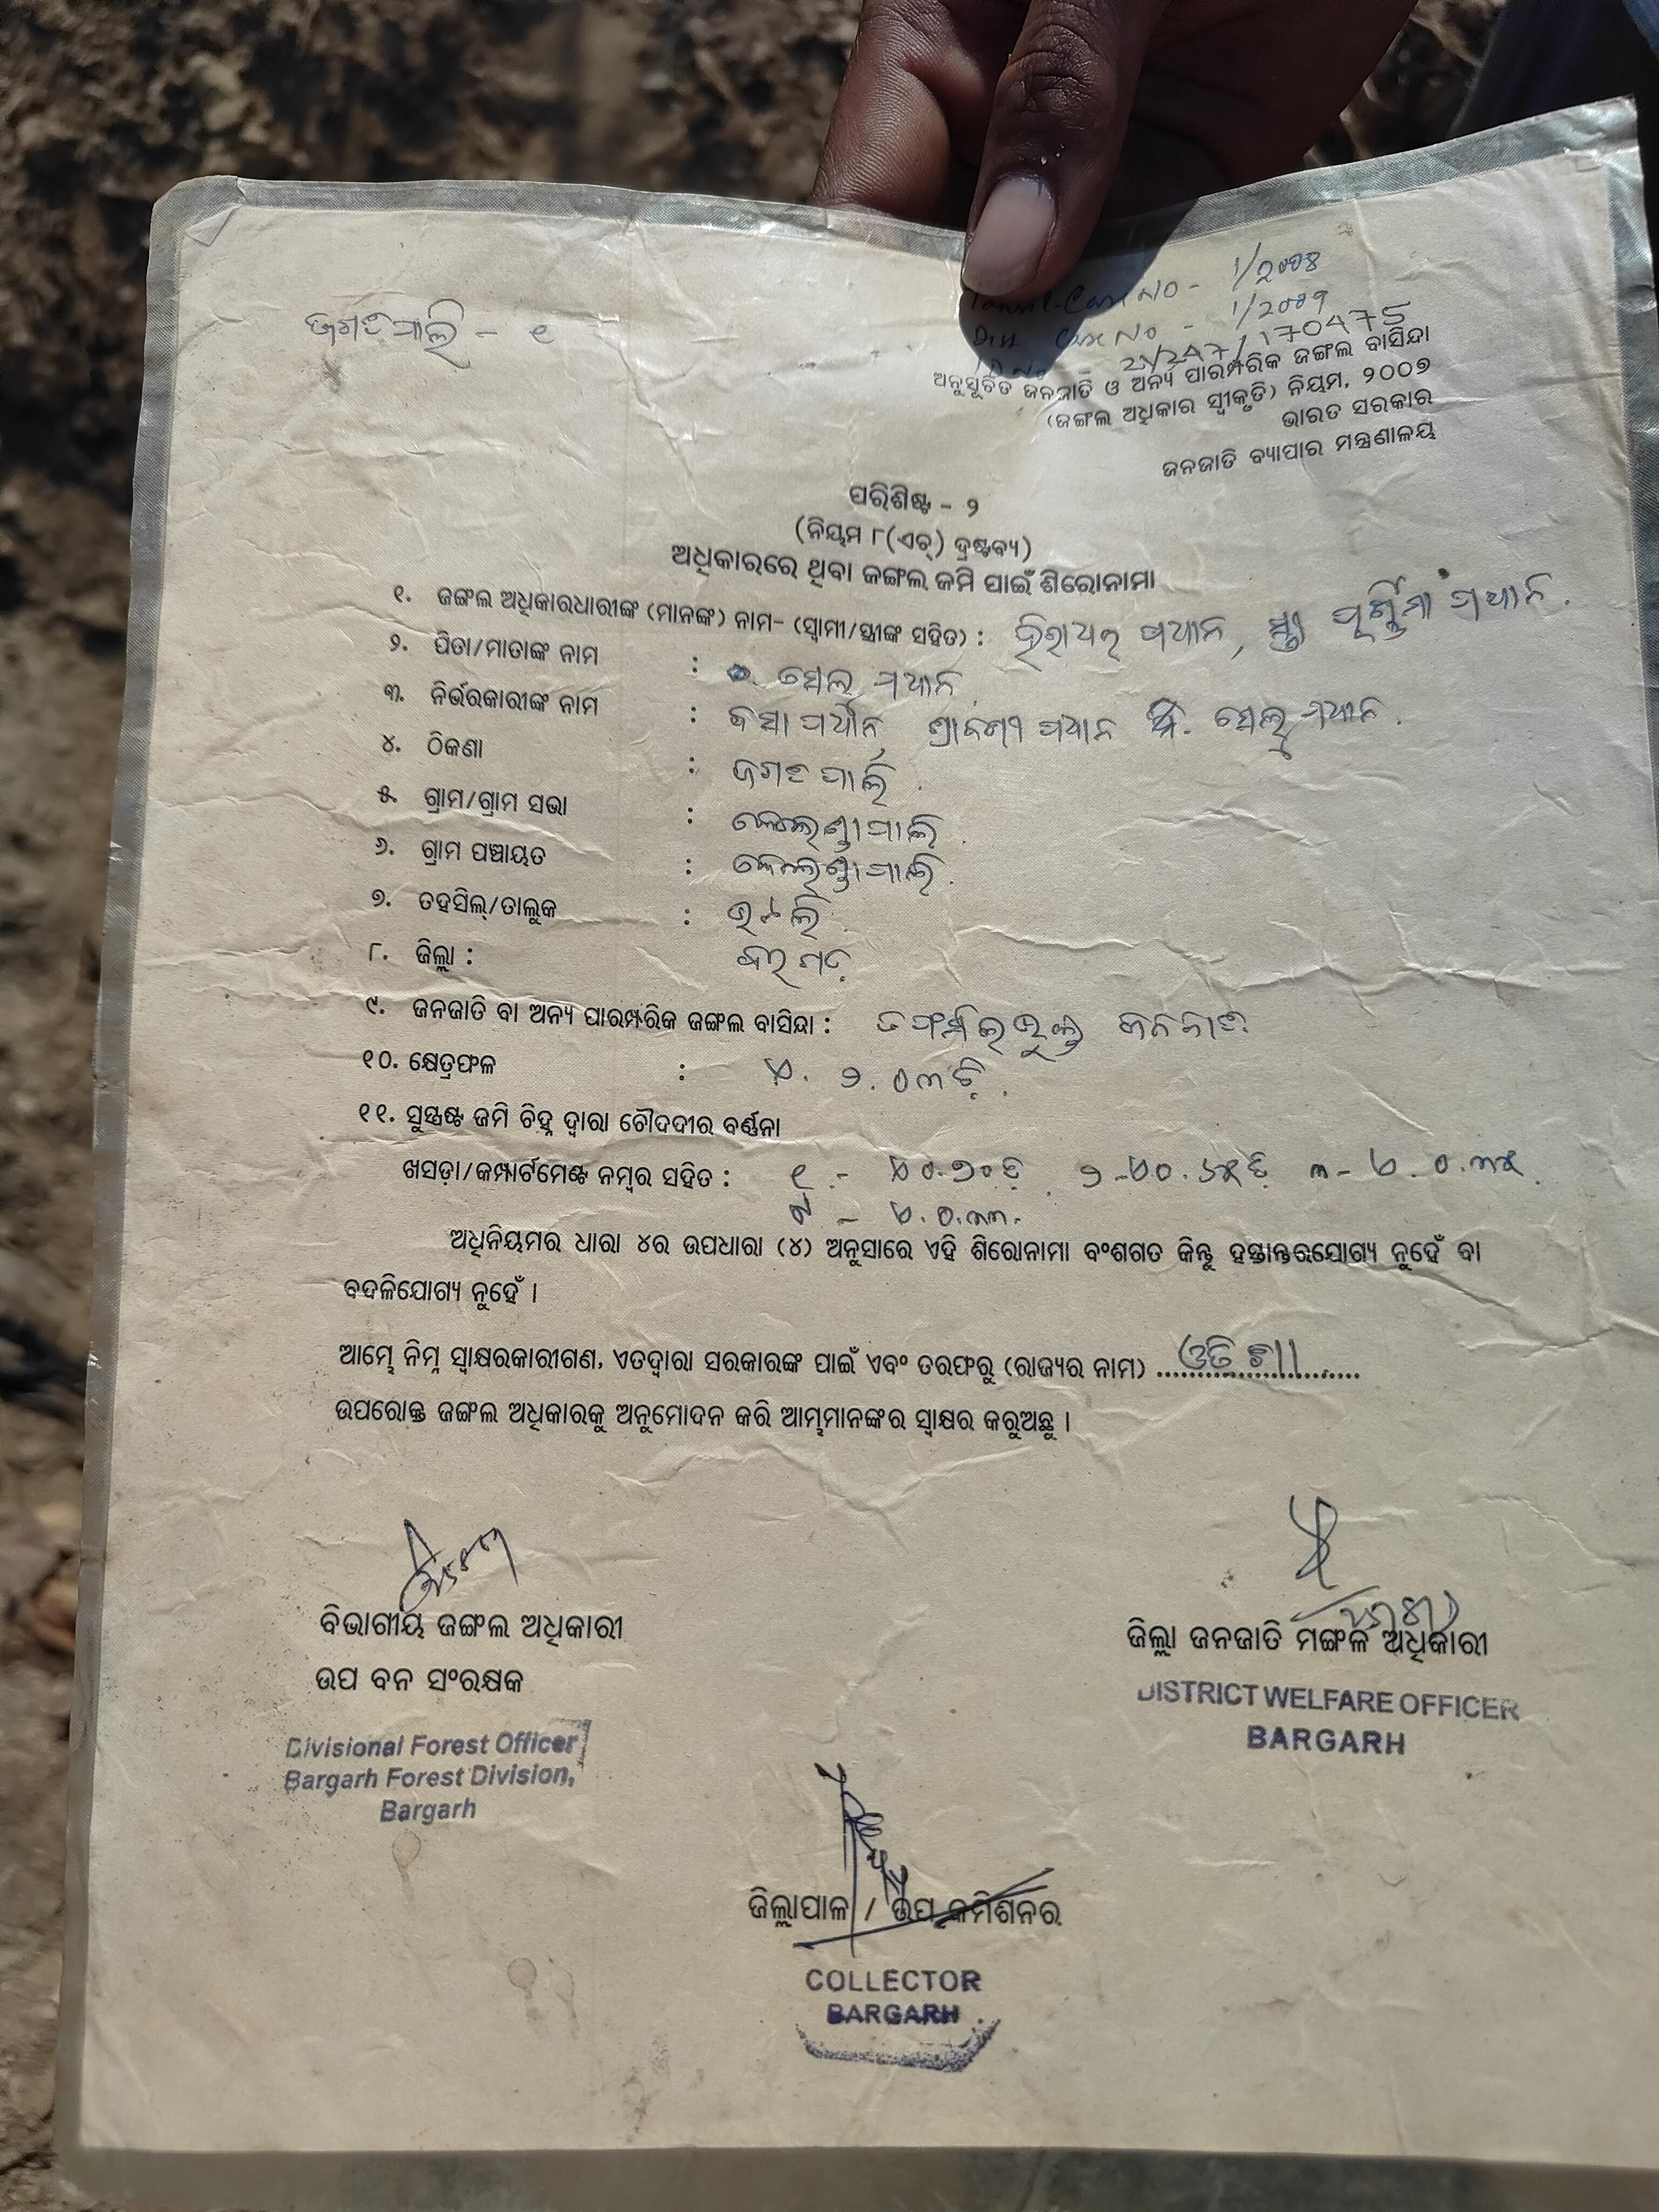 ଜଗତପାଲି - ୧
Case No - 1/2008
Case No - 1/2009
21/247/170475
ଅନୁସୂଚିତ ଜନଜାତି ଓ ଅନ୍ୟ ପାରମ୍ପରିକ ଜଙ୍ଗଲ ବାସିନ୍ଦା
(ଜଙ୍ଗଲ ଅଧିକାର ସ୍ୱୀକୃତି) ନିୟମ, ୨୦୦୭
ଭାରତ ସରକାର
ଜନଜାତି ବ୍ୟାପାର ମନ୍ତ୍ରଣାଳୟ
ପରିଶିଷ୍ଟ - ୨
(ନିୟମ ୮(ଏଚ୍) ଦ୍ରଷ୍ଟବ୍ୟ)
ଅଧିକାରରେ ଥିବା ଜଙ୍ଗଲ ଜମି ପାଇଁ ଶିରୋନାମା
୧. ଜଙ୍ଗଲ ଅଧିକାରଧାରୀଙ୍କ (ମାନଙ୍କ) ନାମ- (ସ୍ୱାମୀ/ସ୍ତ୍ରୀଙ୍କ ସହିତ) : ପ୍ରଧାନ, ପୂର୍ଣ୍ଣିମା ପ୍ରଧାନ.
୨. ପିତା/ମାତାଙ୍କ ନାମ : ପ୍ରଧାନ
୩. ନିର୍ଭରକାରୀଙ୍କ ନାମ : ପ୍ରଧାନ ପ୍ରଧାନ ପ୍ରଧାନ.
୪. ଠିକଣା : ଜଗତପାଲି.
୫. ଗ୍ରାମ/ଗ୍ରାମ ସଭା : କେଲେଣ୍ଡାପାଲି.
୬. ଗ୍ରାମ ପଞ୍ଚାୟତ : କେଲେଣ୍ଡାପାଲି.
୭. ତହସିଲ୍/ତାଲୁକ : ଭଟଲି.
୮. ଜିଲ୍ଲା : ବରଗଡ଼
୯. ଜନଜାତି ବା ଅନ୍ୟ ପାରମ୍ପରିକ ଜଙ୍ଗଲ ବାସିନ୍ଦା : ତଫସିଲଭୁକ୍ତ ଜନଜାତି
୧୦. କ୍ଷେତ୍ରଫଳ : ୨.୦୩ ଡ଼ି.
୧୧. ସୁସ୍ପଷ୍ଟ ଜମି ଚିହ୍ନ ଦ୍ୱାରା ଚୌଦଦୀର ବର୍ଣ୍ଣନା
ଖସଡ଼ା/କମ୍ପାର୍ଟମେଣ୍ଟ ନମ୍ବର ସହିତ : ୧ - ୨ - ୩ -
୪ -
ଅଧିନିୟମର ଧାରା ୪ର ଉପଧାରା (୪) ଅନୁସାରେ ଏହି ଶିରୋନାମା ବଂଶଗତ କିନ୍ତୁ ହସ୍ତାନ୍ତରଯୋଗ୍ୟ ନୁହେଁ ବା
ବଦଳିଯୋଗ୍ୟ ନୁହେଁ ।
ଆମ୍ଭେ ନିମ୍ନ ସ୍ୱାକ୍ଷରକାରୀଗଣ, ଏତଦ୍ୱାରା ସରକାରଙ୍କ ପାଇଁ ଏବଂ ତରଫରୁ (ରାଜ୍ୟର ନାମ) ଓଡ଼ିଶା
ଉପରୋକ୍ତ ଜଙ୍ଗଲ ଅଧିକାରକୁ ଅନୁମୋଦନ କରି ଆମ୍ଭମାନଙ୍କର ସ୍ୱାକ୍ଷର କରୁଅଛୁ ।
ବିଭାଗୀୟ ଜଙ୍ଗଲ ଅଧିକାରୀ
ଉପ ବନ ସଂରକ୍ଷକ
Divisional Forest Officer
Bargarh Forest Division,
Bargarh
ଜିଲ୍ଲା ଜନଜାତି ମଙ୍ଗଳ ଅଧିକାରୀ
DISTRICT WELFARE OFFICER
BARGARH
ଜିଲ୍ଲାପାଳ / ଉପ କମିଶନର
COLLECTOR
BARGARH